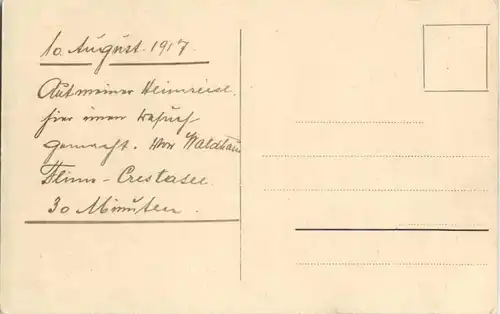 10. August. 1917.
Auf meiner Heimreise.
hier einen Besuch
gemacht. Von Waldhaus
Flims - Crestasee.
30 Minuten.